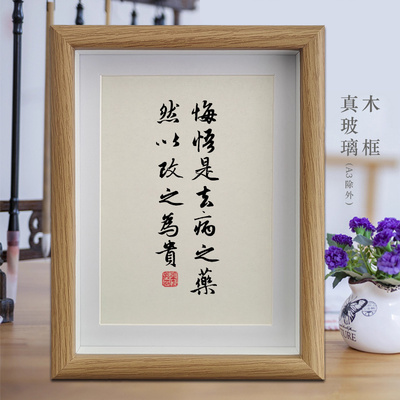 悔悟是去病之藥
然以改之為貴
木框
真玻璃
(A3除外)